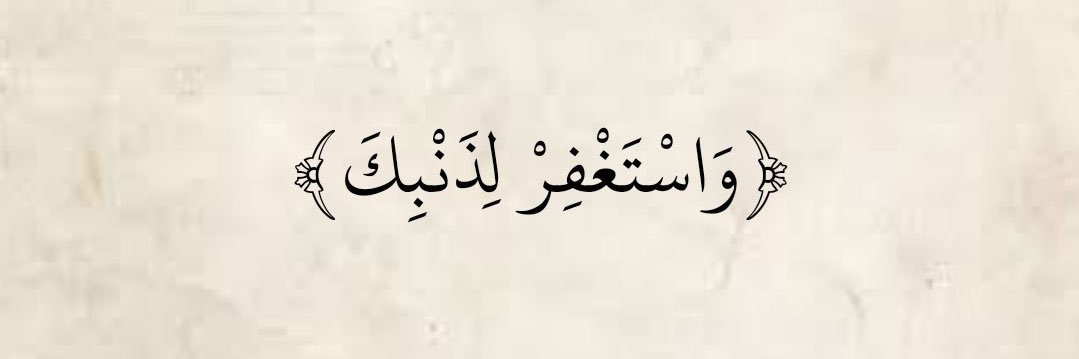 ﴿وَاسْتَغْفِرْ لِذَنْبِكَ﴾